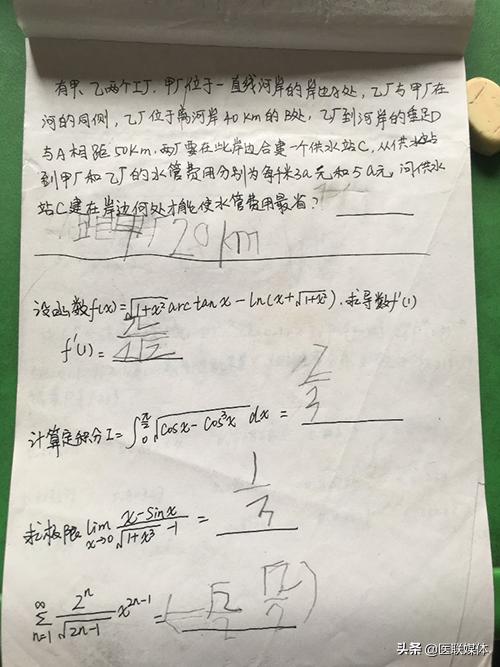 有甲、乙两个工厂,甲厂位于一直线河岸的岸边A处,乙厂与甲厂在
河的同侧,乙厂位于离河岸40km的B处,乙厂到河岸的垂足D
与A相距50km,两厂要在此岸边合建一个供水站C,从供水站
到甲厂和乙厂的水管费用分别为每千米3a元和5a元,问供水
站C建在岸边何处才能使水管费用最省?
距甲厂20km
设函数f(x)=√(1+x²) arctanx-ln(x+√(1+x²)).求导数f'(1)
f'(1)= π/4√2
计算定积分I=∫₀^(π/2) √(cosx-cos³x) dx = 2/3
求极限 lim x→0 (x-sinx)/(√(1+x³)-1) = 1/3
∑ n=1 ∞ 2ⁿ/√(2n-1) x²ⁿ⁻¹ = (-√2/2 √2/2)
头条 @医联媒体